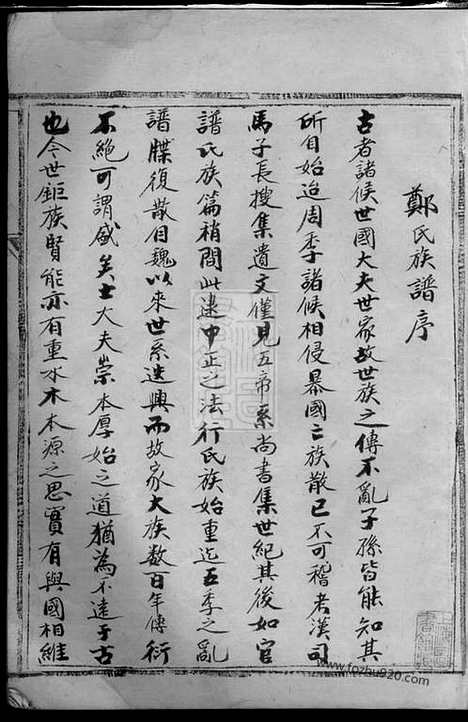 鄭氏族譜序
古者諸侯世國大夫世家故世族之傳不亂子孫皆能知其
所自始迨周季諸侯相侵暴國亡族散已不可稽考漢司
馬子長搜集遺文僅見五帝系尚書集世紀其後如官
譜氏族篇稍間此逮中正之法行氏族始重迄五季之亂
譜牒復散自魏以來世系迭興而故家大族数百年傳衍
不絕可謂盛矣士大夫崇本厚始之道猶為不逮于古
也今世鉅族賢能亦有重水木本源之思實有與國相維
www.fozhu920.com